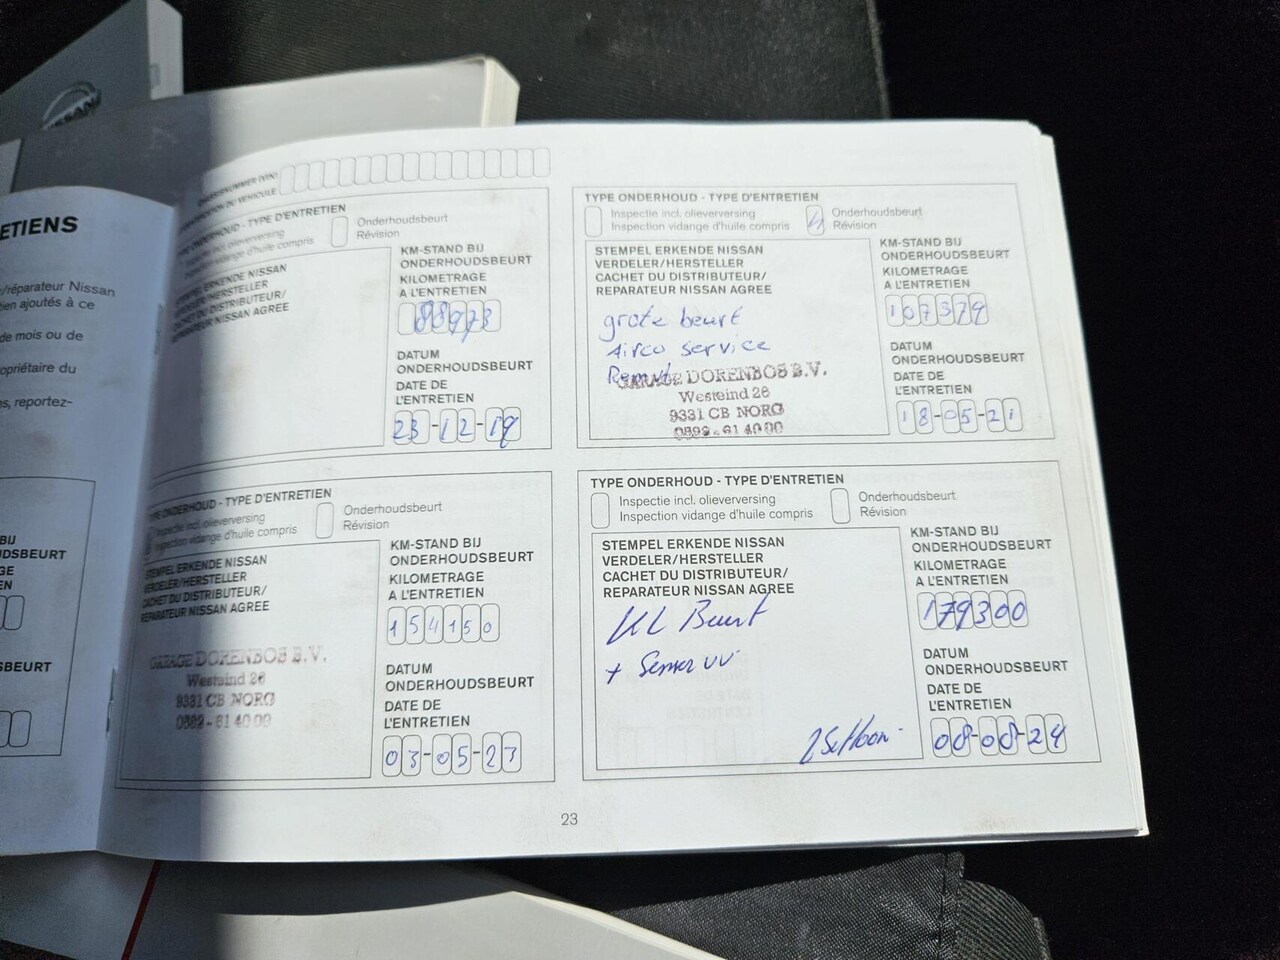 NISSAN
ETIENS
/réparateur Nissan
tien ajoutés à ce
de mois ou de
opriétaire du
es, reportez-
BIJ
UDSBEURT
GE
EN
SBEURT
CHASSISNUMMER (VIN)
DU VEHICULE
TYPE ONDERHOUD - TYPE D'ENTRETIEN
incl. olieverversing
Inspection vidange d'huile compris
Onderhoudsbeurt
Révision
STEMPEL ERKENDE NISSAN
VERDELER/HERSTELLER
CACHET DU DISTRIBUTEUR/
REPARATEUR NISSAN AGREE
KM-STAND BIJ
ONDERHOUDSBEURT
KILOMETRAGE
A L'ENTRETIEN
88973
DATUM
ONDERHOUDSBEURT
DATE DE
L'ENTRETIEN
23-12-19
TYPE ONDERHOUD - TYPE D'ENTRETIEN
Inspectie incl. olieverversing
Inspection vidange d'huile compris
Onderhoudsbeurt
Révision
STEMPEL ERKENDE NISSAN
VERDELER/HERSTELLER
CACHET DU DISTRIBUTEUR/
REPARATEUR NISSAN AGREE
grote beurt
Airco service
GARAGE DORENBOS B.V.
Westeind 26
9331 CB NORG
0592-61 40 00
KM-STAND BIJ
ONDERHOUDSBEURT
KILOMETRAGE
A L'ENTRETIEN
107379
DATUM
ONDERHOUDSBEURT
DATE DE
L'ENTRETIEN
18-05-21
TYPE ONDERHOUD - TYPE D'ENTRETIEN
Inspectie incl. olieverversing
Inspection vidange d'huile compris
Onderhoudsbeurt
Révision
STEMPEL ERKENDE NISSAN
VERDELER/HERSTELLER
CACHET DU DISTRIBUTEUR/
REPARATEUR NISSAN AGREE
GARAGE DORENBOS B.V.
Westeind 26
9331 CB NORG
0592-61 40 00
KM-STAND BIJ
ONDERHOUDSBEURT
KILOMETRAGE
A L'ENTRETIEN
154150
DATUM
ONDERHOUDSBEURT
DATE DE
L'ENTRETIEN
03-05-23
TYPE ONDERHOUD - TYPE D'ENTRETIEN
Inspectie incl. olieverversing
Inspection vidange d'huile compris
Onderhoudsbeurt
Révision
STEMPEL ERKENDE NISSAN
VERDELER/HERSTELLER
CACHET DU DISTRIBUTEUR/
REPARATEUR NISSAN AGREE
KL Beurt
+ Sensor VV
KM-STAND BIJ
ONDERHOUDSBEURT
KILOMETRAGE
A L'ENTRETIEN
179300
DATUM
ONDERHOUDSBEURT
DATE DE
L'ENTRETIEN
08-08-24
23